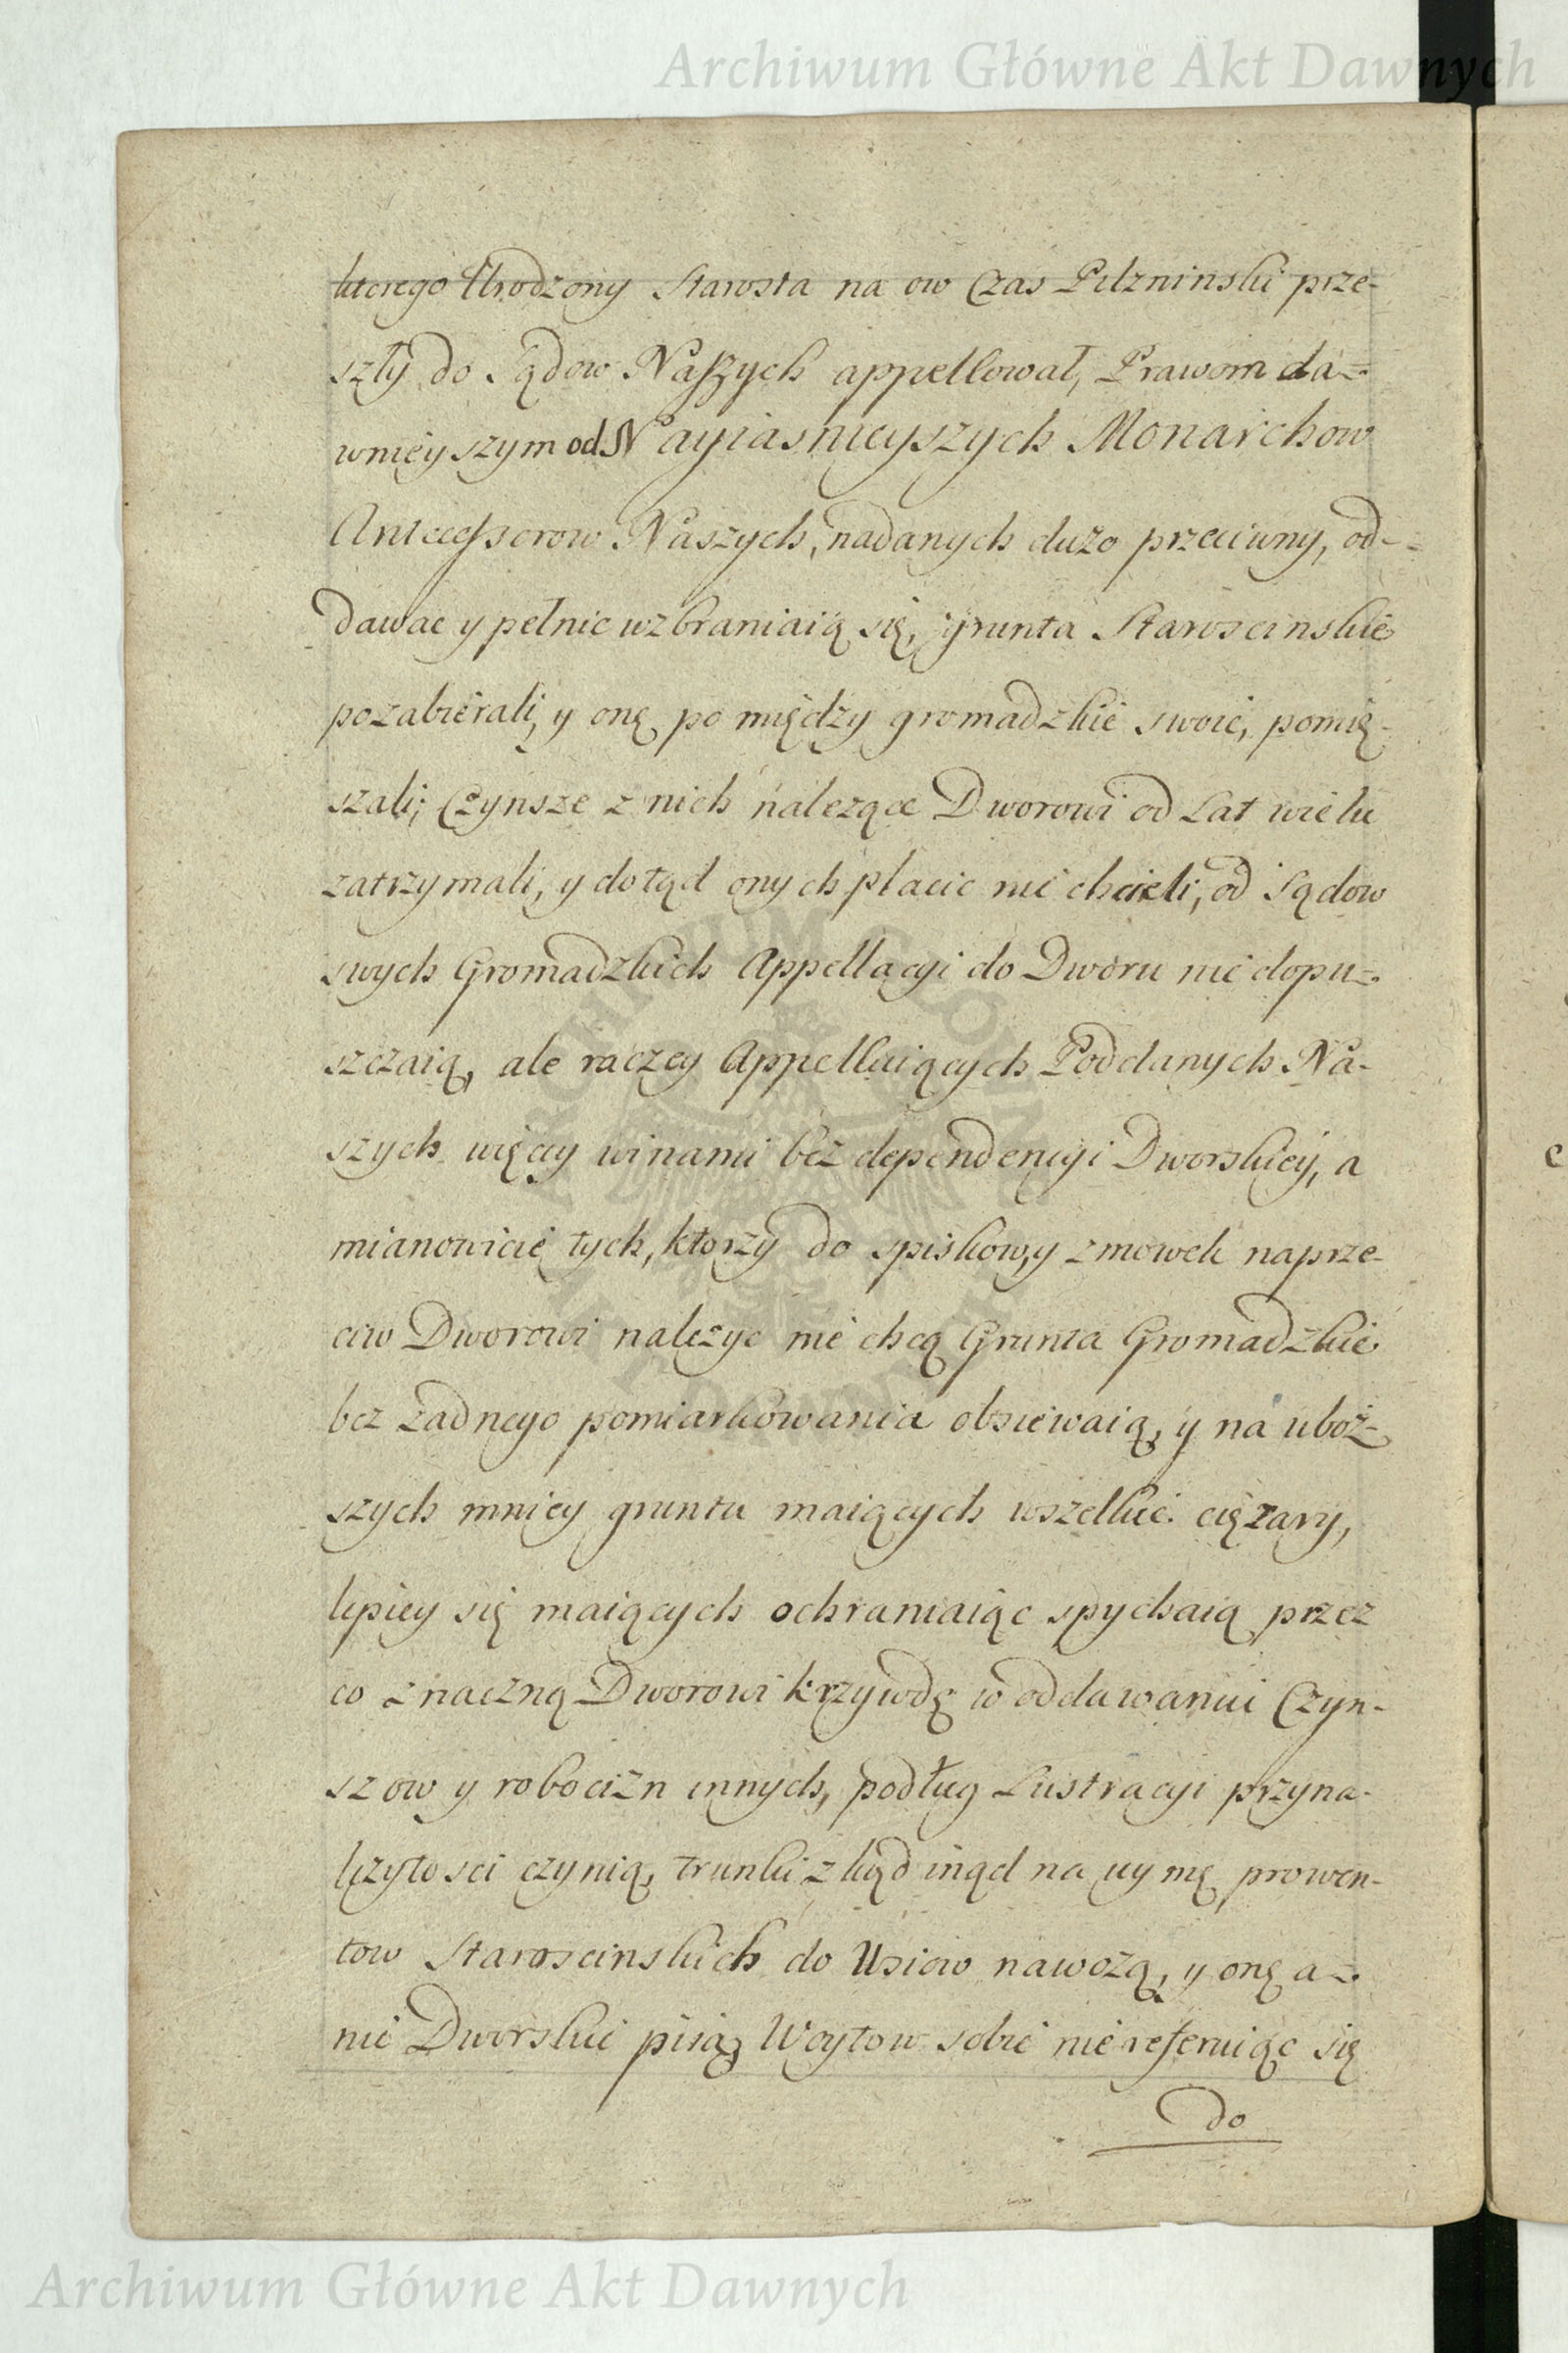 Archiwum Główne Akt Dawnych
ktorego Urodzony Starosta na ow Czas Pilzninski prze-
szły do Sądow Naszych appellował, Prawom da-
wnieyszym od Nayiasnieyszych Monarchow
Antecessorow Naszych, nadanych dużo przeciwny, od-
dawac y pełnic wzbraniaią się, grunta Staroscinskie
pozabierali, y onę po między gromadzkie swoie, pomię-
szali; Czynsze z nich nalezące Dworowi od Lat wielu
zatrzymali, y dotąd onych płacic nie chcieli, od Sądow
swych Gromadzkich Appellacyi do Dworu nie dopu-
szczaią, ale raczey Appelluiących Poddanych Na-
szych więcey winami bez dependencyi Dworskiey, a
mianowicie tych, ktorzy do spiskow, y zmowek naprze-
ciw Dworowi należyc nie chcą Grunta Gromadzkie
bez żadnego pomiarkowania obsiewaią, y na uboż-
szych mniey gruntu maiących wszelkie cięzary,
lepiey się maiących ochraniaiąc spychaią przez
co znaczną Dworowi krzywdę w oddawaniu Czyn-
szow y robocizn innych, podług Lustracyi przyna-
lężytosci czynią, trunki z kąd inąd na uymę prowen-
tow Staroscinskich do Wsiow nawożą, y onę a-
nie Dworskie piią, Woytow sobie nie referuiąc się
do
Archiwum Główne Akt Dawnych